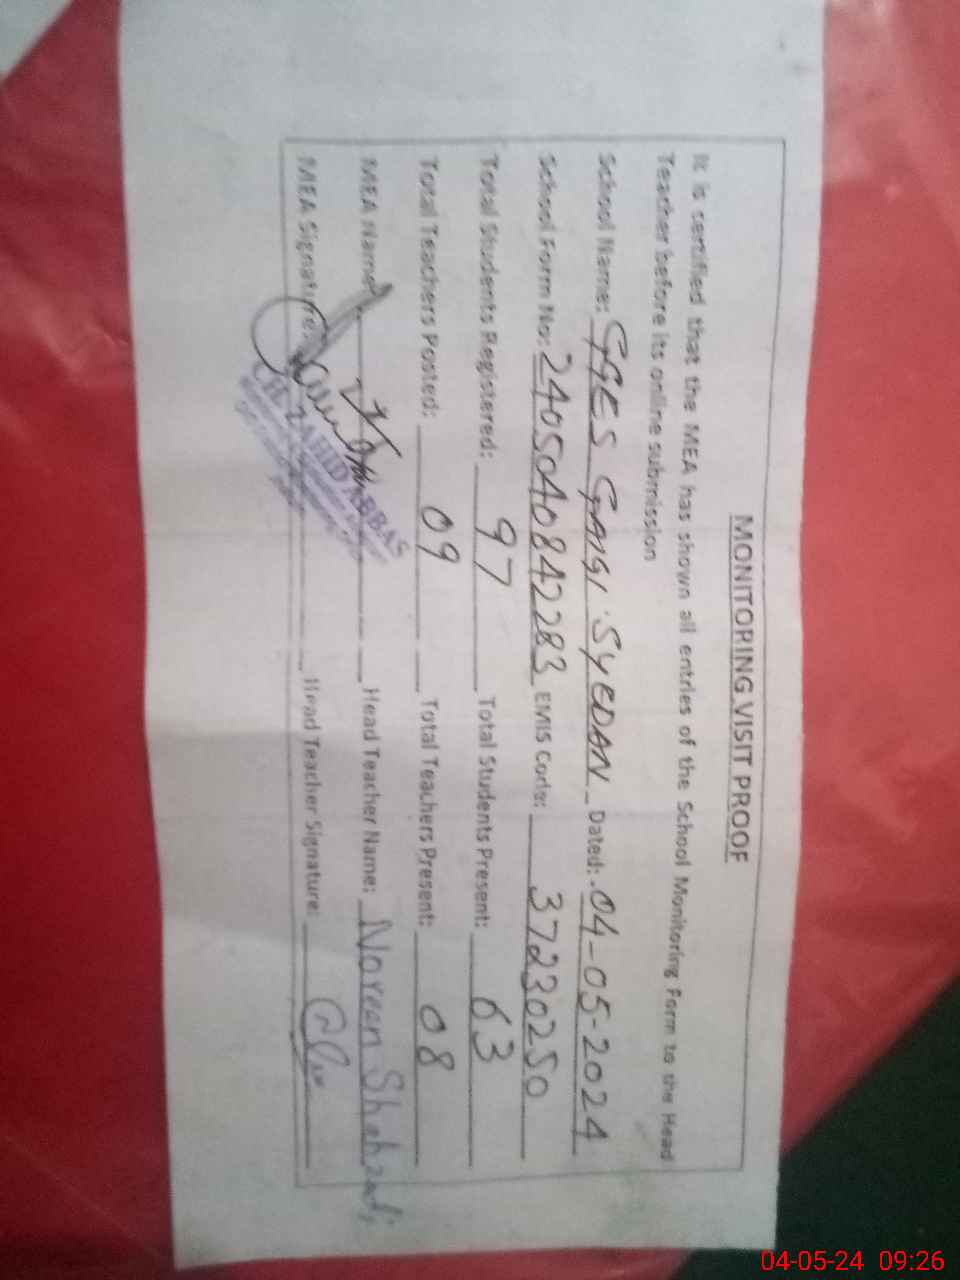 MONITORING VISIT PROOF
It is certified that the MEA has shown all entries of the School Monitoring Form to the Head
Teacher before its online submission
School Name: GGES GANGI SYEDAN Dated: 04-05-2024
School Form No: 2405040842283 EMIS Code: 37230250
Total Students Registered: 97 Total Students Present: 63
Total Teachers Posted: 09 Total Teachers Present: 08
MEA Name: Head Teacher Name: Noreen Shehzadi
MEA Signature: Head Teacher Signature:
CH. ZAHID ABBAS
04-05-24 09:26